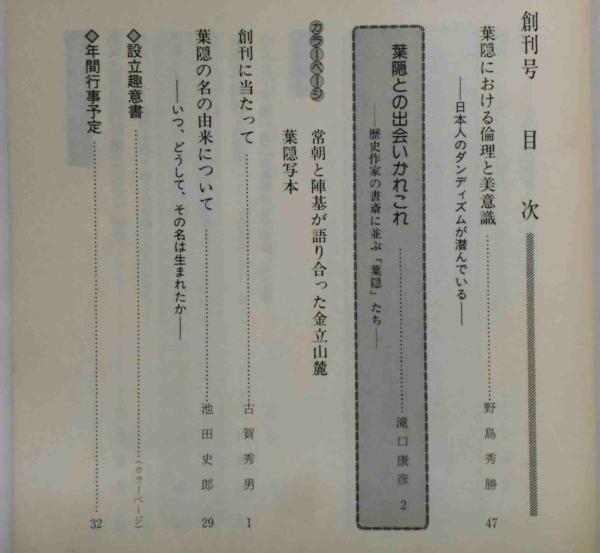 創刊号 目次
葉隠における倫理と美意識……野島秀勝 47
――日本人のダンディズムが潜んでいる――
葉隠との出会いかれこれ……滝口康彦 2
――歴史作家の書斎に並ぶ「葉隠」たち――
カラーページ 常朝と陣基が語り合った金立山麓
葉隠写本
創刊に当たって……古賀秀男 1
葉隠の名の由来について……池田史郎 29
――いつ、どうして、その名は生まれたか――
◇設立趣意書……(カラーページ)
◇年間行事予定……32